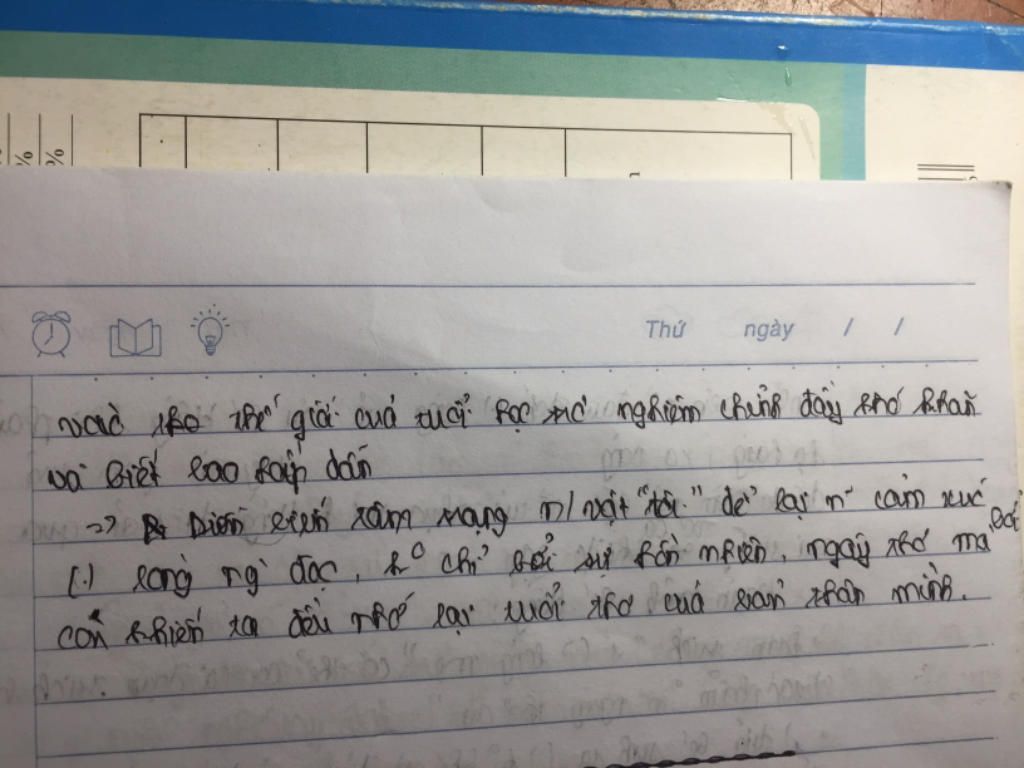 %
%
Thứ ngày / /
vào thế giới của tuổi học trò nghiêm chỉnh đầy khó khăn
và biết bao hấp dẫn
=> Diễn biến tâm trạng n/vật "tôi" để lại n~ cảm xúc
(.) lòng ng` đọc, k° chỉ bởi sự hồn nhiên, ngây thơ mà bởi
còn khiến ta đều nhớ lại tuổi thơ của bản thân mình.